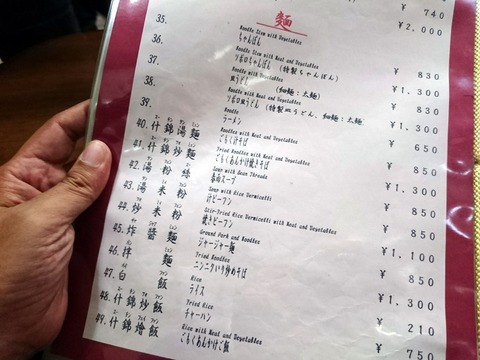 ¥ 740
¥2,000
麺
35. Noodle Stew with Vegetables
ちゃんぽん ¥ 830
36. Noodle Stew with Meat and Vegetables
ソボロちゃんぽん (特製ちゃんぽん) ¥1,300
37. Noodle with Vegetables
皿うどん (細麺：太麺) ¥ 830
38. Noodle with Meat and Vegetables
ソボロ皿うどん (特製皿うどん、細麺：太麺) ¥1,300
39. Noodle
ラーメン ¥ 650
40. 什錦湯麺 Noodles with Meat and Vegetables
ごもく汁そば ¥ 850
41. 什錦炒麺 Fried Noodles with Meat and Vegetables
ごもくあんかけ焼きそば ¥1,300
42. 湯粉絲 Soup with Bean Threads
春雨スープ ¥ 850
43. 湯米粉 Soup with Rice Vermicelli
汁ビーフン ¥ 850
44. 炒米粉 Stir-Fried Rice Vermicelli with Meat and Vegetables
焼きビーフン ¥1,100
45. 炸醤麺 Ground Pork and Noodles
ジャージャー麺 ¥ 850
46. 拌麺 Fried Noodles
ニンニクいり炒めそば ¥1,300
47. 白飯 Rice
ライス ¥ 210
48. 什錦炒飯 Fried Rice
チャーハン ¥ 750
49. 什錦燴飯 Rice with Meat and Vegetables
ごもくあんかけご飯